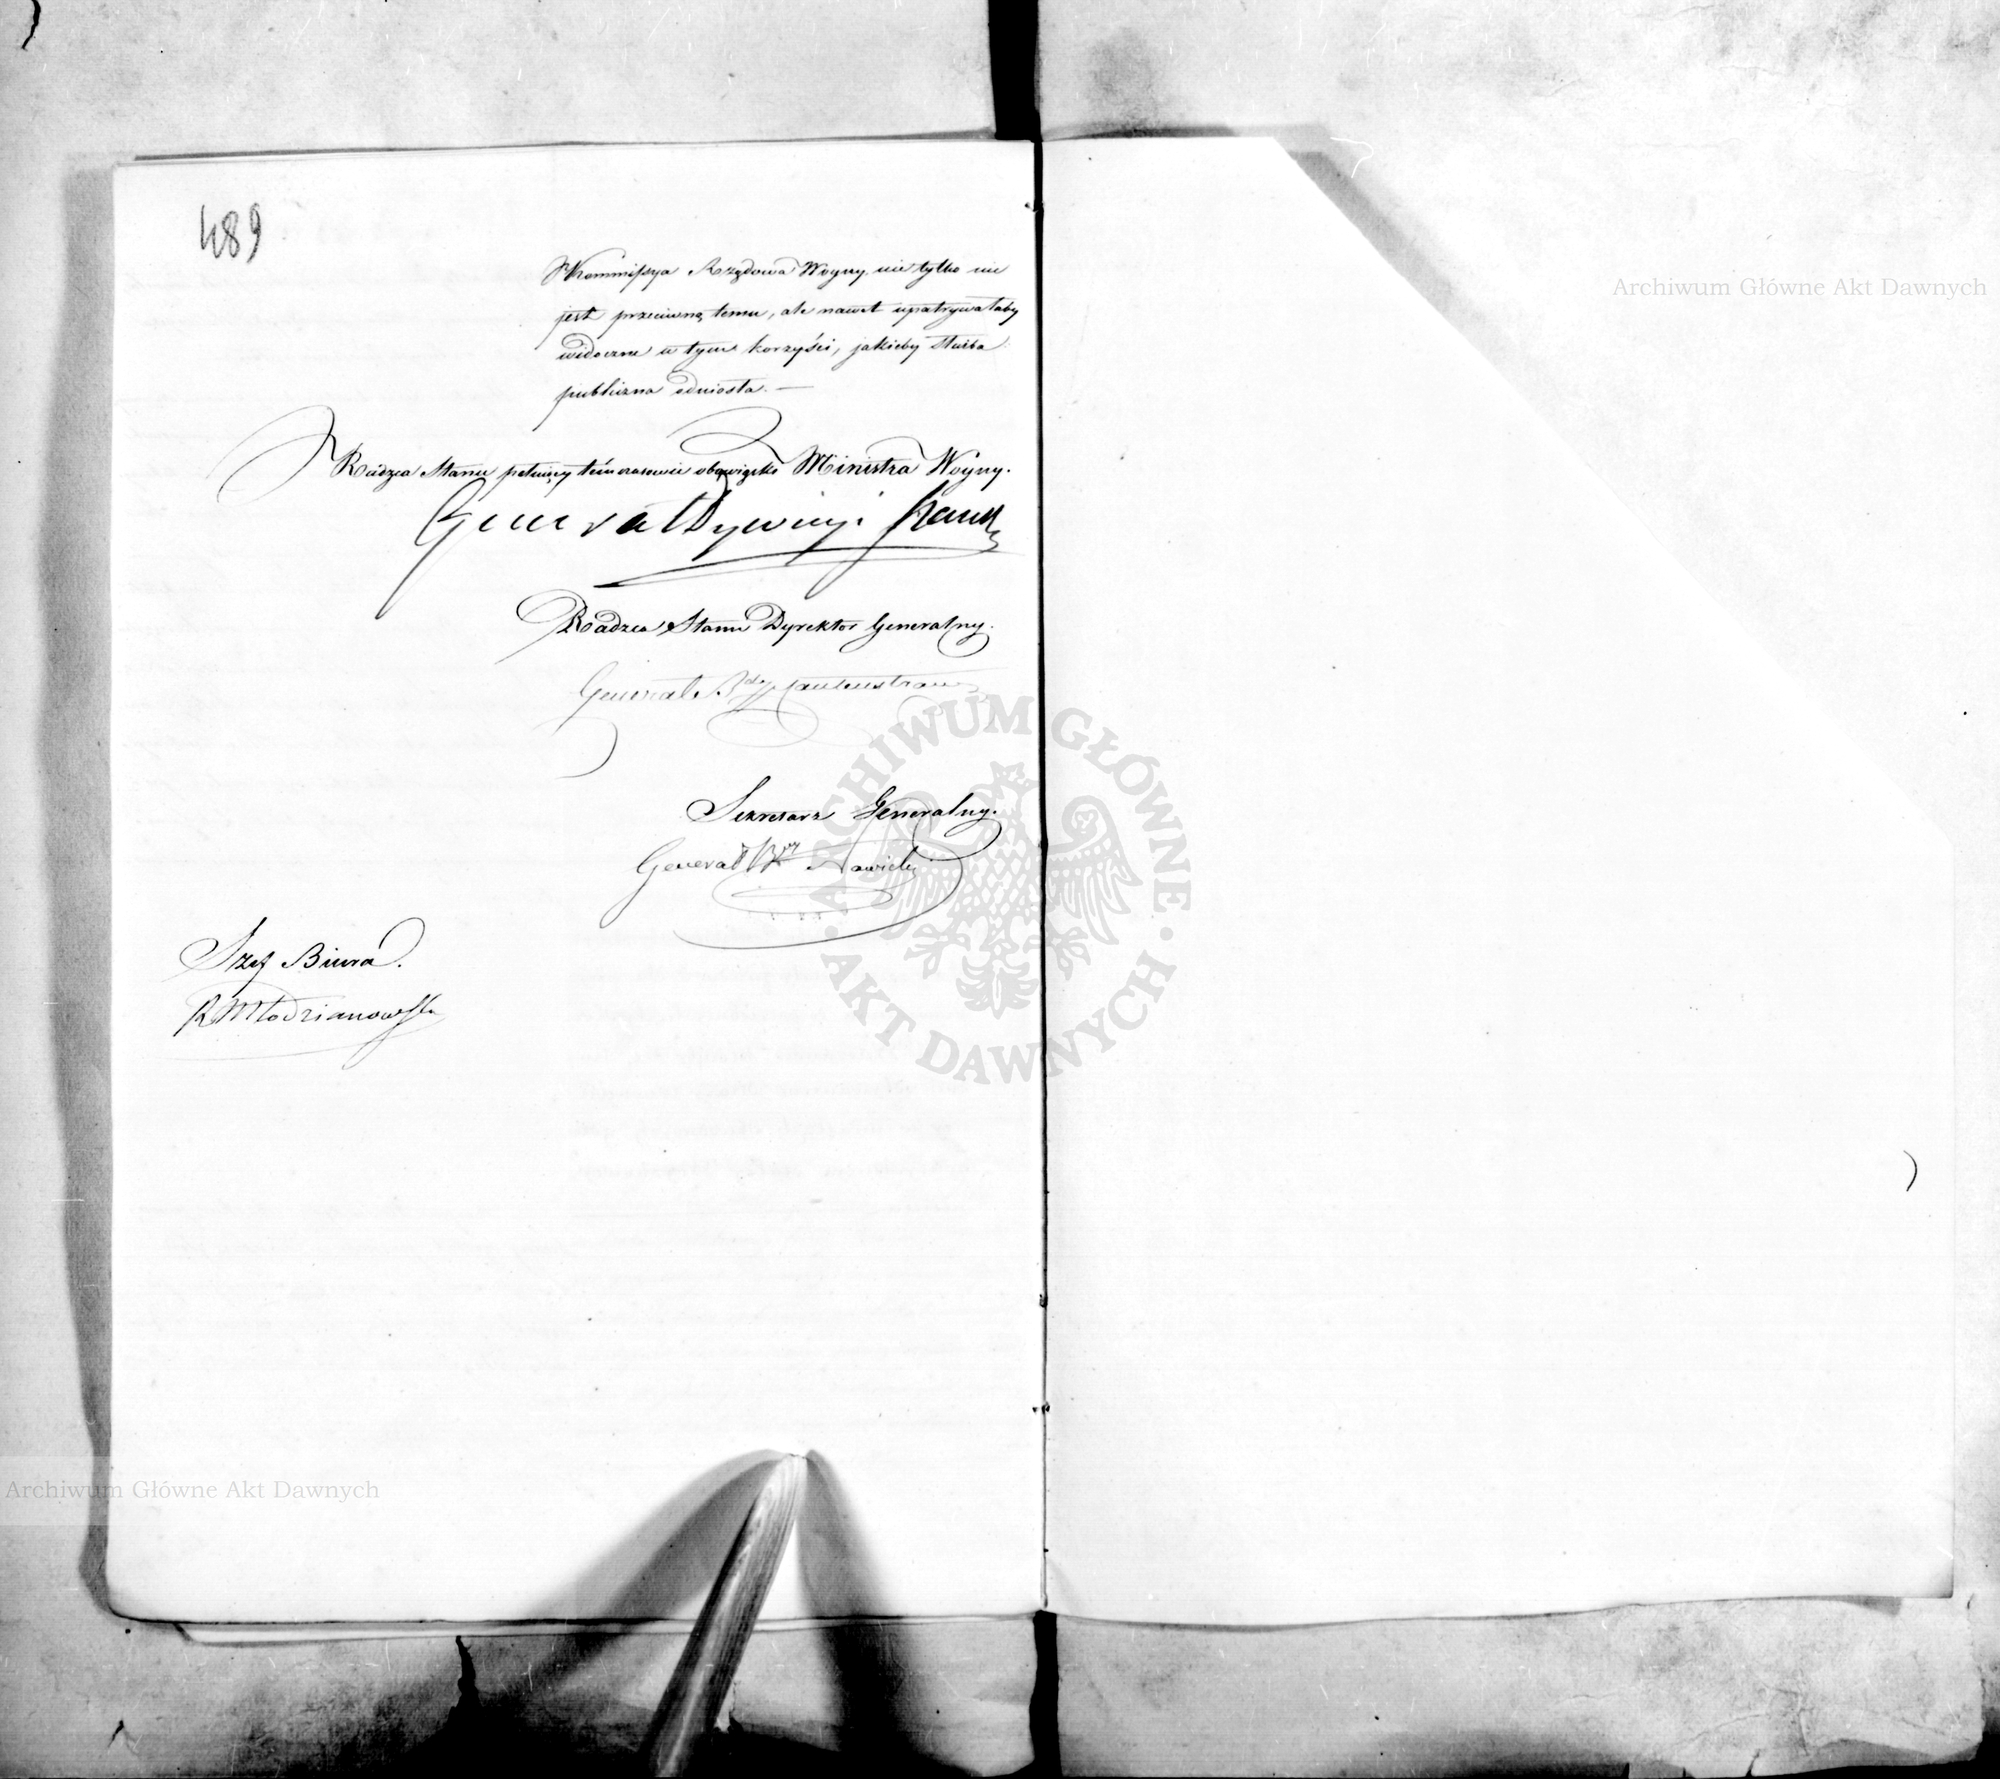 489
Kommissya Rządowa Woyny nie tylko nie
jest przeciwną temu, ale nawet upatrywałaby
widoczne w tym korzyści, jakieby służba
publiczna odniosła. —
Radzca Stanu pełniący tymczasowie obowiązki Ministra Woyny.
Generał Dywizyi Hauke
Radzca Stanu Dyrektor Generalny.
Generał Bdy
Sekretarz Generalny.
Generał Nowicki
Szef Biura.
R Młodzianowski
Archiwum Główne Akt Dawnych
ARCHIWUM GŁÓWNE • AKT DAWNYCH •
Archiwum Główne Akt Dawnych